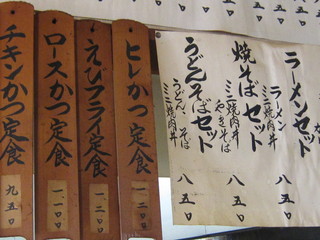 ラーメンセット
ラーメン
ミニ焼肉丼
八五〇
焼そばセット
やきそば
ミニ焼肉丼
八五〇
うどんそばセット
うどん、そば
ミニ焼肉丼
八五〇
ヒレかつ定食
一、二〇〇
えびフライ定食
一、二〇〇
ロースかつ定食
一、〇〇
チキンかつ定食
九五〇